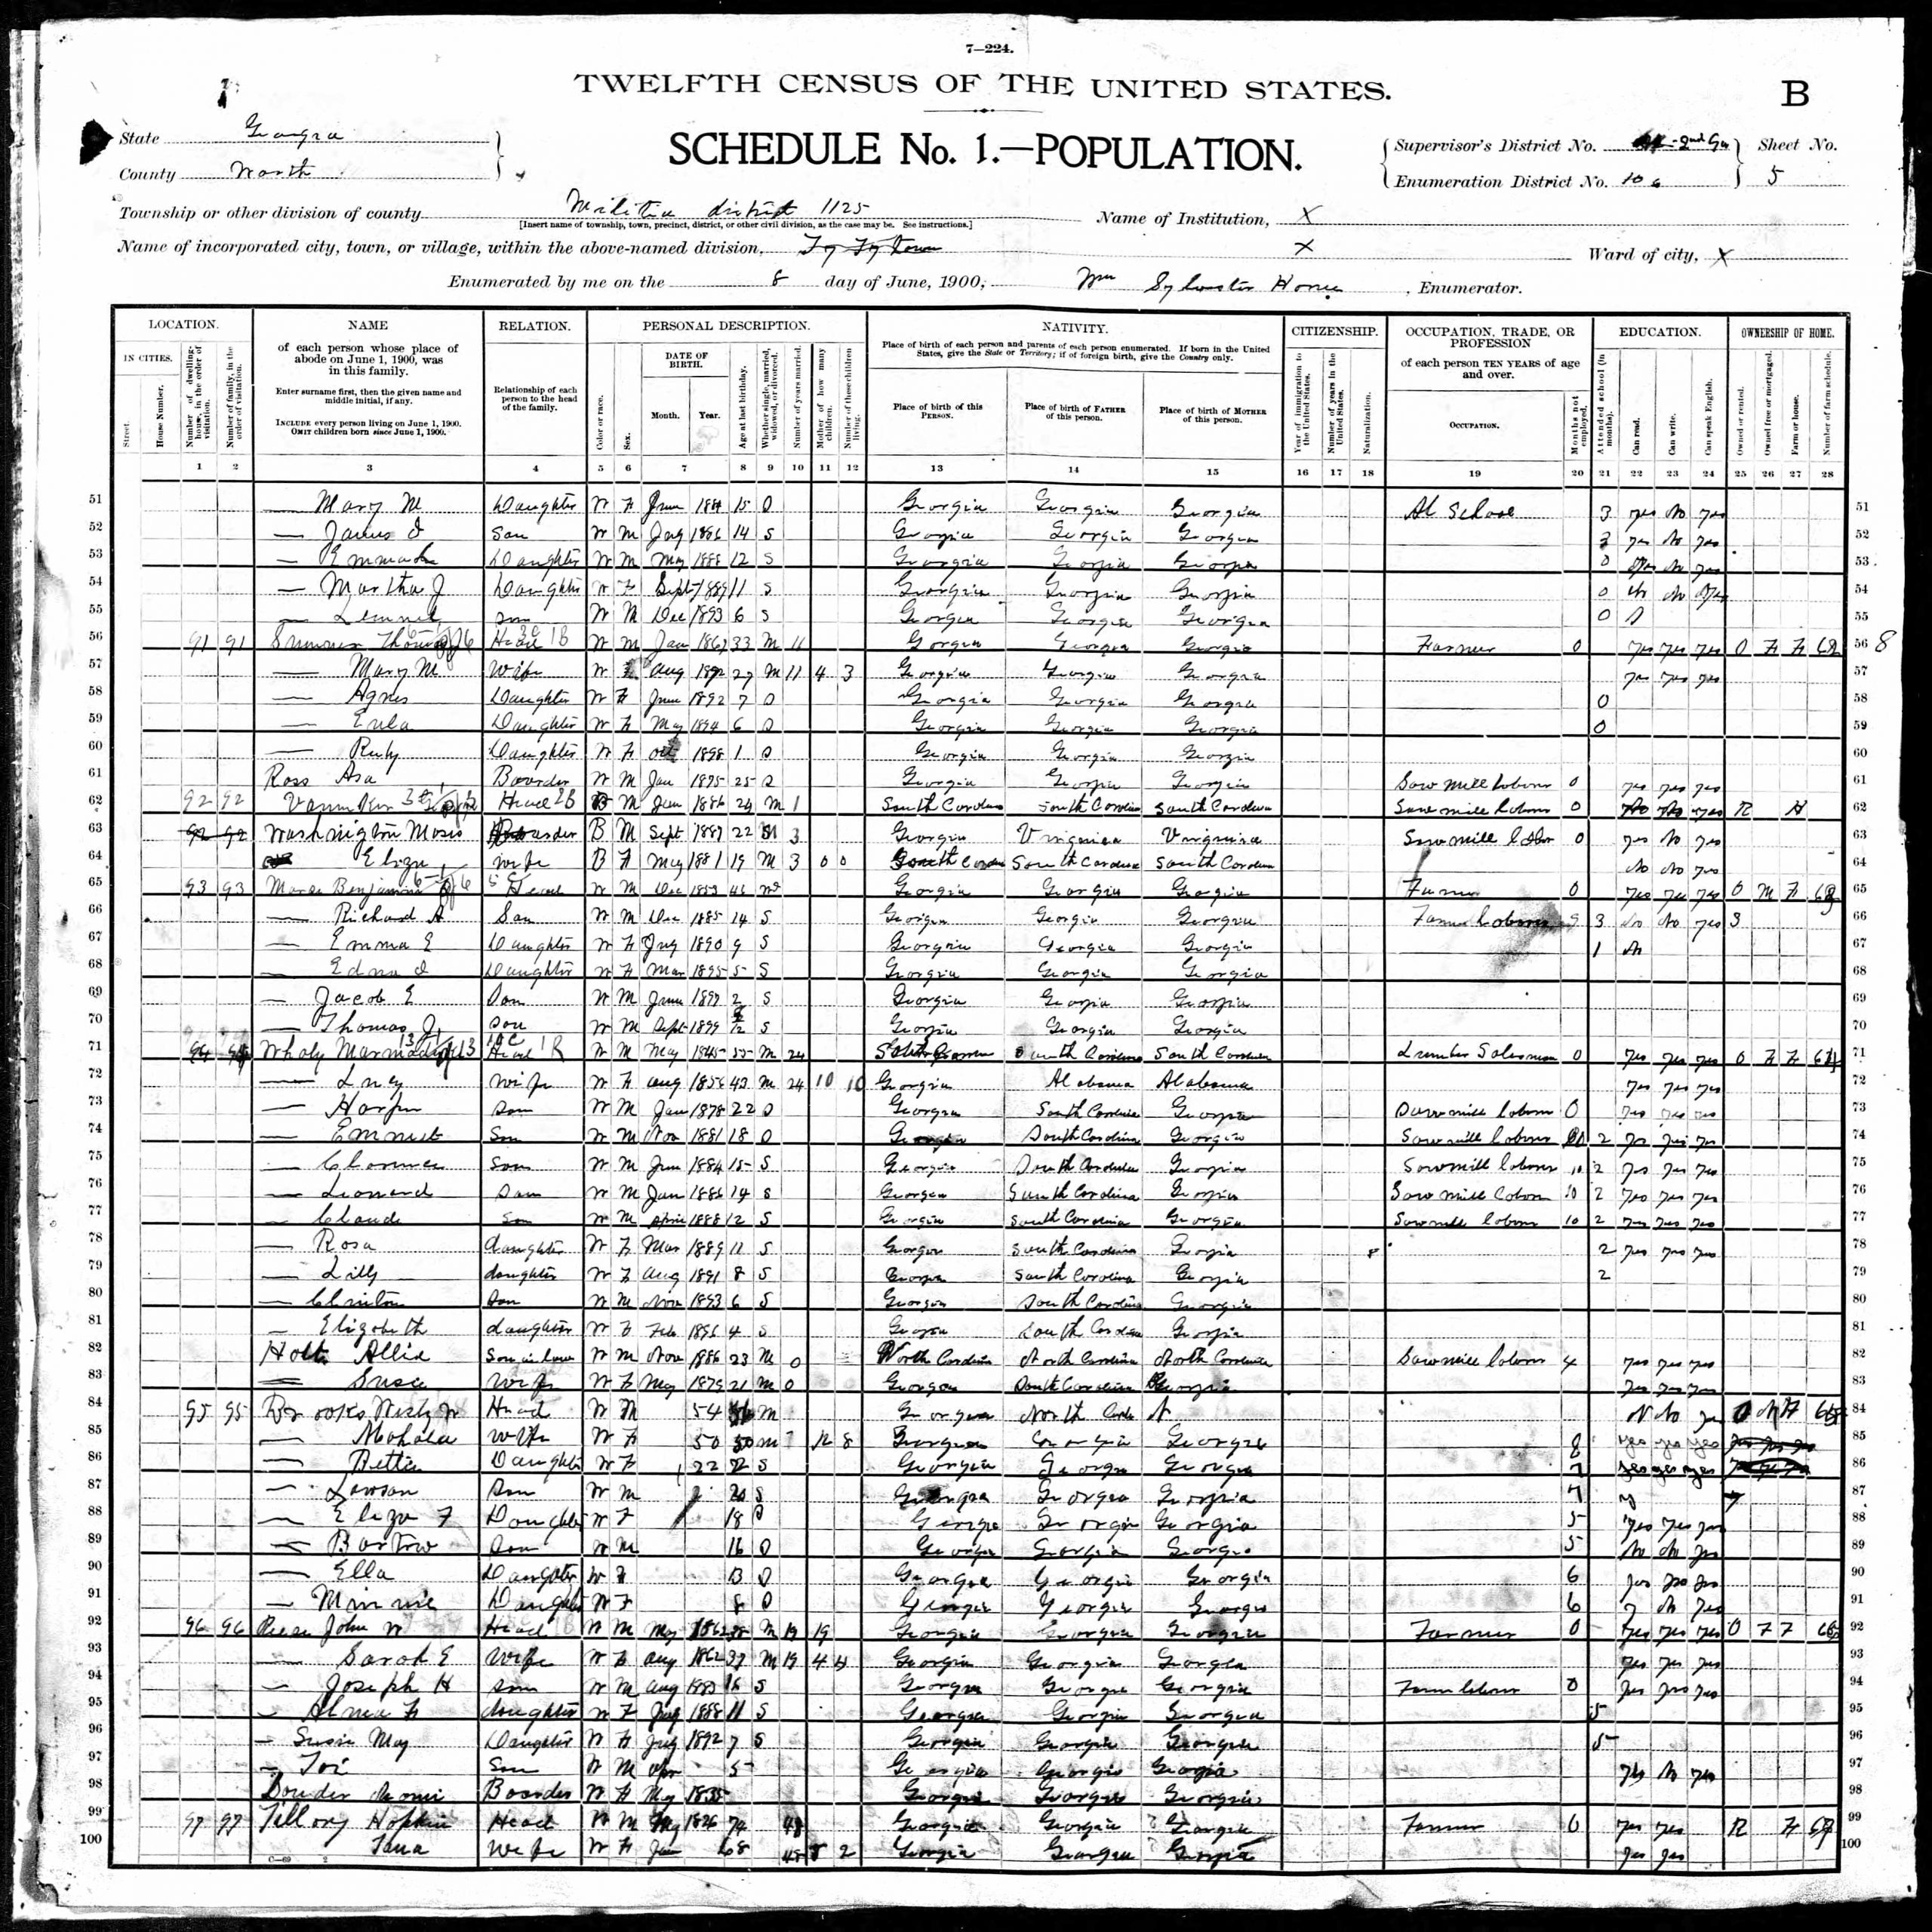 7—224.
TWELFTH CENSUS OF THE UNITED STATES.
B
State Georgia
SCHEDULE No. 1.—POPULATION.
Supervisor's District No. 2nd Ga Sheet No.
County Worth
Enumeration District No. 106 5
Township or other division of county Militia district 1125 Name of Institution, X
[Insert name of township, town, precinct, district, or other civil division, as the case may be. See instructions.]
Name of incorporated city, town, or village, within the above-named division, Ty Ty town X Ward of city, X
Enumerated by me on the 8 day of June, 1900, Wm Sylvester Enumerator.
LOCATION. NAME RELATION. PERSONAL DESCRIPTION. NATIVITY. CITIZENSHIP. OCCUPATION, TRADE, OR PROFESSION EDUCATION. OWNERSHIP OF HOME.
IN CITIES. of each person whose place of abode on June 1, 1900, was in this family.
Enter surname first, then the given name and middle initial, if any.
INCLUDE every person living on June 1, 1900.
OMIT children born since June 1, 1900.
Street. House Number. Number of dwelling-house, in the order of visitation. Number of family, in the order of visitation.
Relationship of each person to the head of the family.
Color or race. Sex. DATE OF BIRTH. Month. Year. Age at last birthday. Whether single, married, widowed, or divorced. Number of years married. Mother of how many children. Number of these children living.
Place of birth of each person and parents of each person enumerated. If born in the United States, give the State or Territory; if of foreign birth, give the Country only.
Place of birth of this PERSON. Place of birth of FATHER of this person. Place of birth of MOTHER of this person.
Year of immigration to the United States. Number of years in the United States. Naturalization.
of each person TEN YEARS of age and over.
OCCUPATION. Months not employed.
Attended school (in months). Can read. Can write. Can speak English.
Owned or rented. Owned free or mortgaged. Farm or house. Number of farm schedule.
1 2 3 4 5 6 7 8 9 10 11 12 13 14 15 16 17 18 19 20 21 22 23 24 25 26 27 28
51 — Mary M Daughter W F June 15 S Georgia Georgia Georgia At School 3 yes No yes 51
52 — Son W M 14 S Georgia Georgia Georgia 3 yes No yes 52
53 — Daughter W M May 1888 12 S Georgia Georgia Georgia 0 No yes 53
54 — Martha J Daughter W F Sept 1889 11 S Georgia Georgia Georgia 0 No No yes 54
55 — son W M Dec 1893 6 S Georgia Georgia Georgia 0 55
56 91 91 Sumner Thomas Head W M Jan 1867 33 M 11 Georgia Georgia Georgia Farmer 0 yes yes yes O F F 62 56 8
57 — Mary M Wife W F Aug 27 M 11 4 3 Georgia Georgia Georgia yes yes yes 57
58 — Agnes Daughter W F June 1892 7 S Georgia Georgia Georgia 0 58
59 — Eula Daughter W F May 1894 6 S Georgia Georgia Georgia 0 59
60 — Ruby Daughter W F Oct 1898 1 S Georgia Georgia Georgia 60
61 Ross Asa Boarder W M Jan 1875 25 S Georgia Georgia Georgia Saw mill laborer 0 yes yes yes 61
62 92 92 Head B M Jan 24 M 1 South Carolina South Carolina South Carolina Saw mill laborer 0 yes R H 62
63 92 92 Washington Moses Boarder B M Sept 22 M 3 Georgia Virginia Virginia Saw mill labor 0 yes No yes 63
64 Eliza wife B F May 1881 19 M 3 0 0 South Carolina South Carolina South Carolina No No yes 64
65 93 93 Benjamin Head W M Dec 1853 46 Wd Georgia Georgia Georgia Farmer 0 yes yes yes O M F 63 65
66 — Richard A Son W M Dec 1885 14 S Georgia Georgia Georgia Farm Laborer 9 3 No No yes 66
67 — Emma E Daughter W F July 1890 9 S Georgia Georgia Georgia 1 No 67
68 — Edna Daughter W F Mar 1895 5 S Georgia Georgia Georgia 68
69 — Jacob E Son W M June 1897 2 S Georgia Georgia Georgia 69
70 — Thomas J Son W M Sept 1899 S Georgia Georgia Georgia 70
71 94 94 Whaly Head W M May 1845 55 M 24 South Carolina South Carolina South Carolina Lumber Salesman 0 yes yes yes O F F 64 71
72 — Lucy Wife W F Aug 1856 43 M 24 10 10 Georgia Alabama Alabama yes yes yes 72
73 — Harper Son W M Jan 1878 22 S Georgia South Carolina Georgia Saw mill laborer 0 yes yes yes 73
74 — Ernest Son W M Nov 1881 18 S Georgia South Carolina Georgia Saw mill laborer 2 yes yes yes 74
75 — Clarence Son W M June 1884 15 S Georgia South Carolina Georgia Saw mill laborer 10 2 yes yes yes 75
76 — Leonard Son W M Jan 1886 14 S Georgia South Carolina Georgia Saw mill laborer 10 2 yes yes yes 76
77 — Claude Son W M April 1888 12 S Georgia South Carolina Georgia Saw mill laborer 10 2 yes yes yes 77
78 — Rosa daughter W F Mar 1889 11 S Georgia South Carolina Georgia 2 yes yes yes 78
79 — Lilly daughter W F Aug 1891 8 S Georgia South Carolina Georgia 2 79
80 — Clinton Son W M Nov 1893 6 S Georgia South Carolina Georgia 80
81 — Elizabeth daughter W F Feb 1896 4 S Georgia South Carolina Georgia 81
82 Holt Allie Son in law W M Nov 1886 23 M 0 North Carolina North Carolina North Carolina Saw mill laborer 4 yes yes yes 82
83 — Susie Wife W F May 1879 21 M 0 Georgia South Carolina Georgia yes yes yes 83
84 95 95 Brooks W Head W M 54 M Georgia North N No yes O F 84
85 — Mahala Wife W F 50 50 M 12 8 Georgia Georgia Georgia 8 yes yes yes 85
86 — Bettie Daughter W F 22 S Georgia Georgia Georgia 7 yes yes yes 86
87 — Lawson Son W M 20 S Georgia Georgia Georgia 7 87
88 — Eliza F Daughter W F 18 S Georgia Georgia Georgia 5 yes yes yes 88
89 — Bartow Son W M 16 S Georgia Georgia Georgia 5 No No yes 89
90 — Ella Daughter W F 13 S Georgia Georgia Georgia 6 yes yes yes 90
91 — Minnie Daughter W F 8 S Georgia Georgia Georgia 6 No yes 91
92 96 96 John W Head W M May 1862 38 M 19 19 Georgia Georgia Georgia Farmer 0 yes yes yes O F F 92
93 — Sarah E Wife W F Aug 1862 37 M 19 4 4 Georgia Georgia Georgia yes yes yes 93
94 — Joseph H Son W M Aug 1883 16 S Georgia Georgia Georgia Farm laborer 0 yes yes yes 94
95 — Alma F daughter W F July 1888 11 S Georgia Georgia Georgia 5 95
96 — Susie May Daughter W F July 1892 7 S Georgia Georgia Georgia 5 96
97 — Son W M Apr 5 Georgia Georgia Georgia No yes 97
98 Boarder W F May 1835 Georgia Georgia Georgia 98
99 97 97 Hopkin Head W M 1826 74 48 Georgia Georgia Georgia Farmer 0 yes yes R F 67 99
100 Wife W F Jan 68 48 8 2 Georgia Georgia Georgia yes yes 100
C—69 2